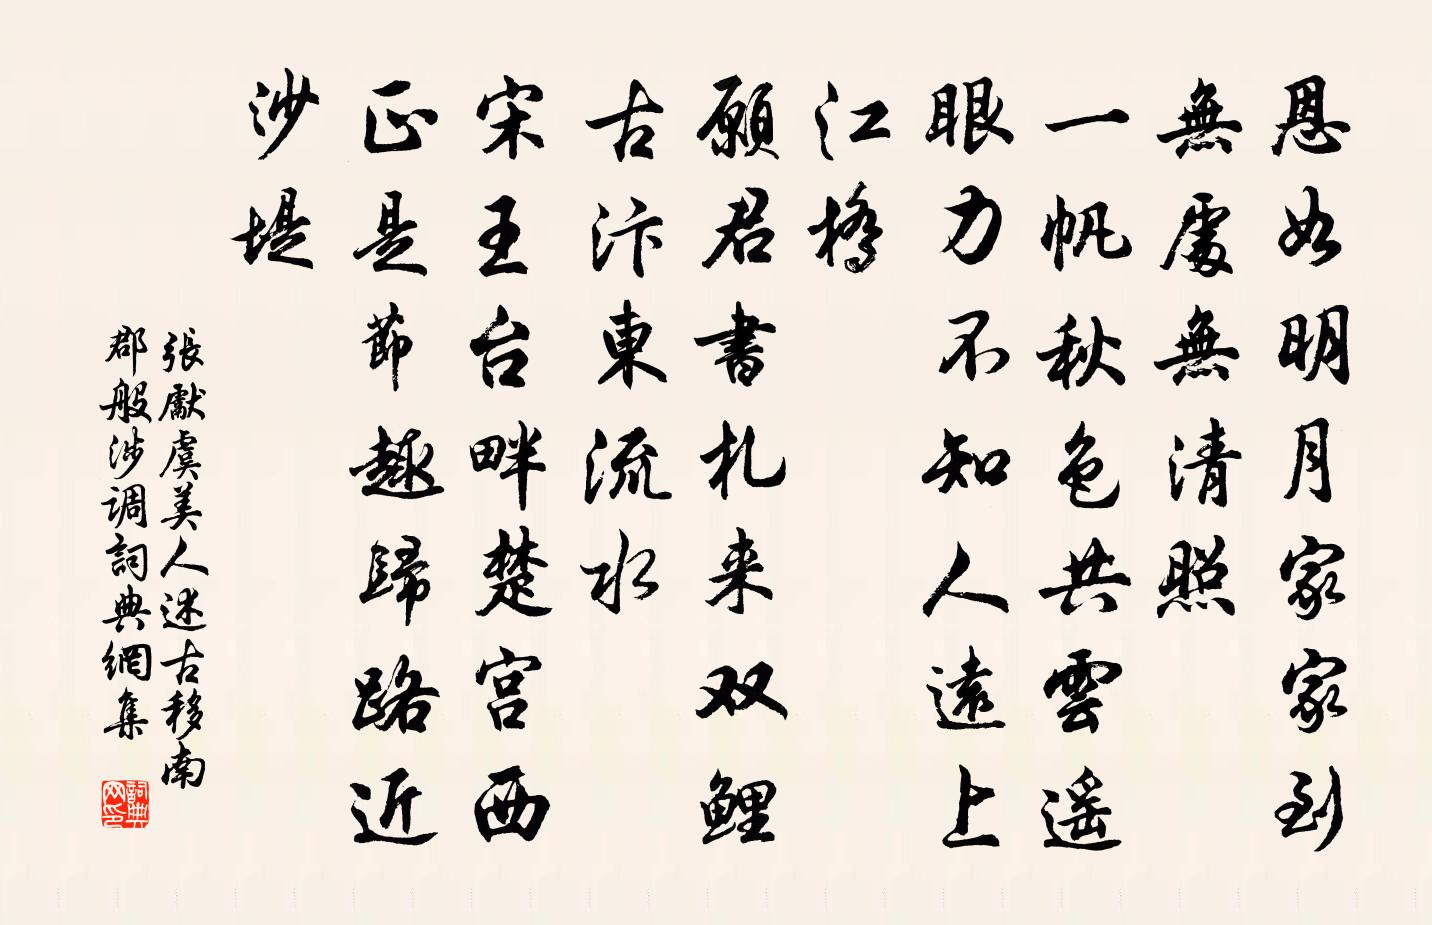 恩如明月家家到
無處無清照
一帆秋色共雲遥
眼力不知人遠上
江橋
願君書札来双鯉
古汴東流水
宋王台畔楚宫西
正是節趣歸路近
沙堤
張獻虞美人述古移南
郡般涉調詞典網集
詞典网印